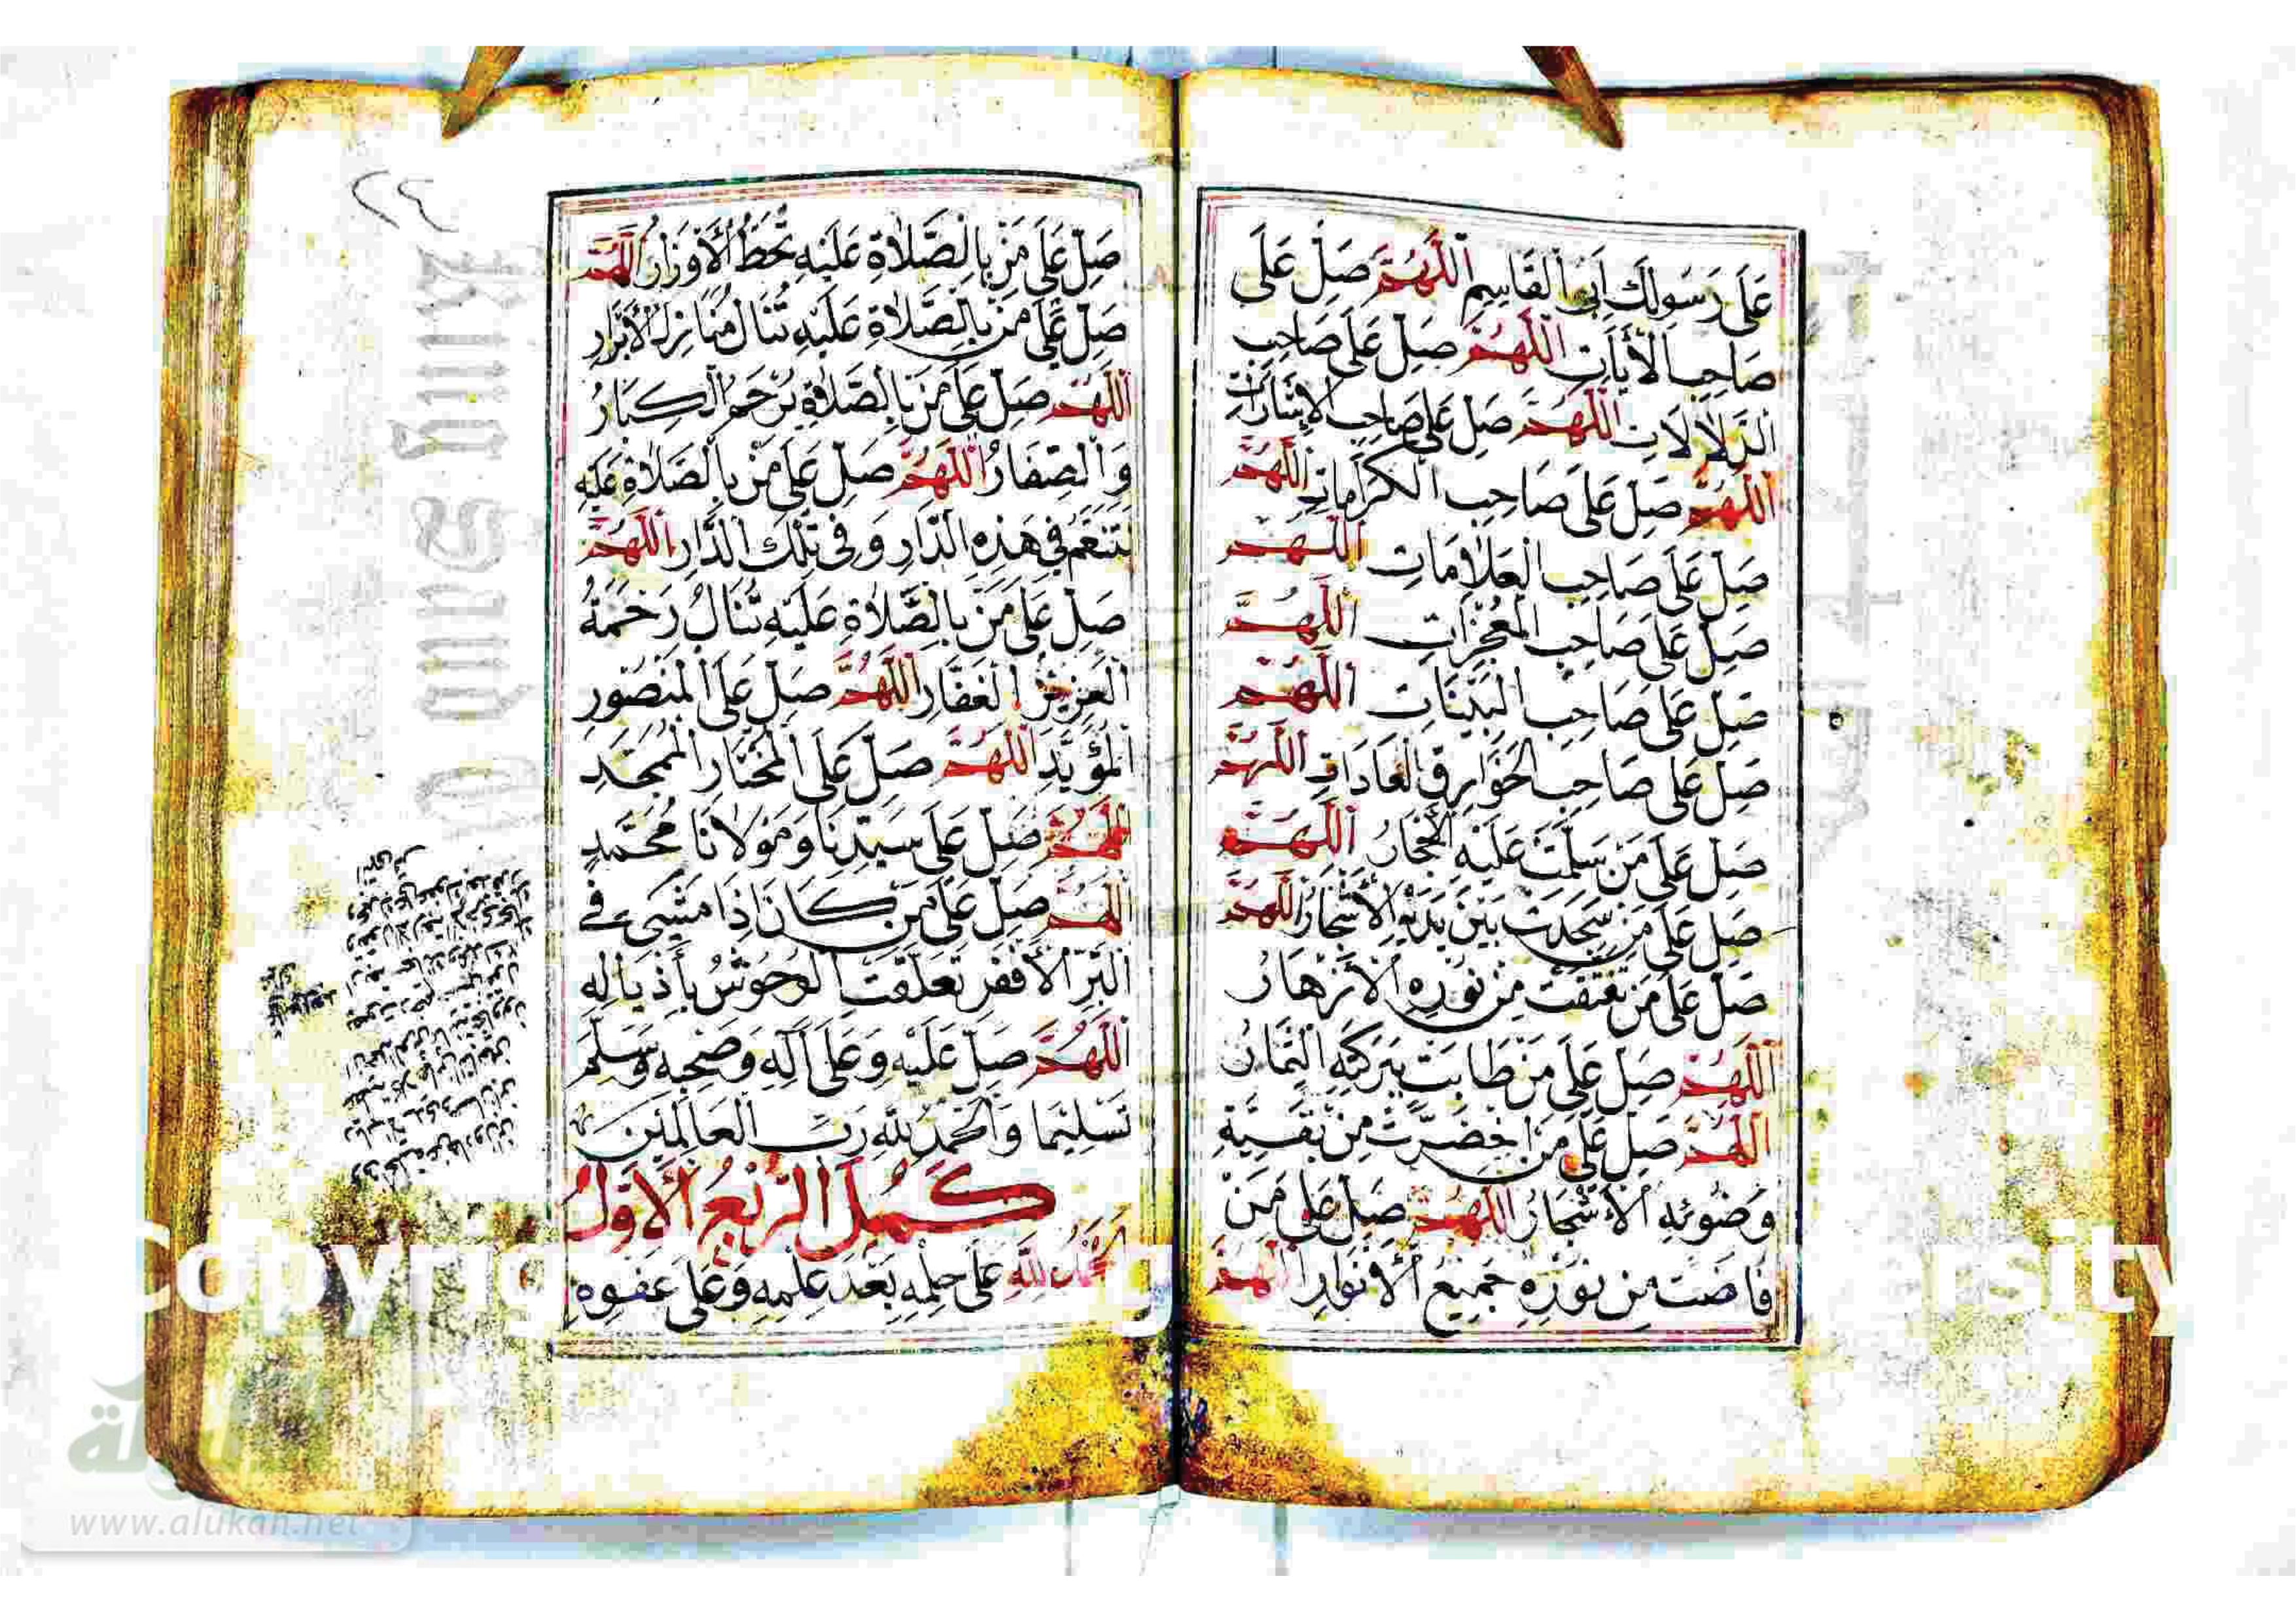 عَلَى رَسُولِكَ اَبِى الْقَاسِمِ اَللّٰهُمَّ صَلِّ عَلَى
صَاحِبِ الْأٰيَاتِ اَللّٰهُمَّ صَلِّ عَلَى صَاحِبِ
الدَّلَالَاتِ اَللّٰهُمَّ صَلِّ عَلَى صَاحِبِ الْإِشَارَاتِ
اَللّٰهُمَّ صَلِّ عَلَى صَاحِبِ الْكَرَامَاتِ اَللّٰهُمَّ
صَلِّ عَلَى صَاحِبِ الْعَلَامَاتِ اَللّٰهُمَّ
صَلِّ عَلَى صَاحِبِ الْمُعْجِزَاتِ اَللّٰهُمَّ
صَلِّ عَلَى صَاحِبِ الْبَيِّنَاتِ اَللّٰهُمَّ
صَلِّ عَلَى صَاحِبِ الْخَوَارِقِ الْعَادَاتِ اَللّٰهُمَّ
صَلِّ عَلَى مَنْ سَلَّمَتْ عَلَيْهِ الْأَحْجَارُ اَللّٰهُمَّ
صَلِّ عَلَى مَنْ سَجَدَتْ بَيْنَ يَدَيْهِ الْأَشْجَارُ اَللّٰهُمَّ
صَلِّ عَلَى مَنْ تَفَتَّقَتْ مِنْ نُورِهِ الْأَزْهَارُ
اَللّٰهُمَّ صَلِّ عَلَى مَنْ طَابَتْ بِبَرَكَتِهِ الثِّمَارُ
اَللّٰهُمَّ صَلِّ عَلَى مَنِ اخْضَرَّتْ مِنْ بَقِيَّةِ
وَضُوئِهِ الْأَشْجَارُ اَللّٰهُمَّ صَلِّ عَلَى مَنْ
فَاضَتْ مِنْ نُورِهِ جَمِيعُ الْأَنْوَارِ اَللّٰهُمَّ
٢٤
صَلِّ عَلَى مَنْ بِالصَّلَاةِ عَلَيْهِ تُحَطُّ الْأَوْزَارُ اَللّٰهُمَّ
صَلِّ عَلَى مَنْ بِالصَّلَاةِ عَلَيْهِ تُنَالُ مَنَازِلُ الْأَبْرَارِ
اَللّٰهُمَّ صَلِّ عَلَى مَنْ بِالصَّلَاةِ يُرْحَمُ الْكِبَارُ
وَالصِّغَارُ اَللّٰهُمَّ صَلِّ عَلَى مَنْ بِالصَّلَاةِ عَلَيْهِ
نَتَنَعَّمُ فِى هَذِهِ الدَّارِ وَفِى تِلْكَ الدَّارِ اَللّٰهُمَّ
صَلِّ عَلَى مَنْ بِالصَّلَاةِ عَلَيْهِ تُنَالُ رَحْمَةُ
الْعَزِيزِ الْغَفَّارِ اَللّٰهُمَّ صَلِّ عَلَى الْمَنْصُورِ
الْمُؤَيَّدِ اَللّٰهُمَّ صَلِّ عَلَى الْمُخْتَارِ الْمُمَجَّدِ
اَللّٰهُمَّ صَلِّ عَلَى سَيِّدِنَا وَمَوْلَانَا مُحَمَّدٍ
اَللّٰهُمَّ صَلِّ عَلَى مَنْ كَانَ إِذَا مَشَى فِى
الْبَرِّ الْأَقْفَرِ تَعَلَّقَتِ الْوُحُوشُ بِأَذْيَالِهِ
اَللّٰهُمَّ صَلِّ عَلَيْهِ وَعَلَى آلِهِ وَصَحْبِهِ وَسَلِّمْ
تَسْلِيمًا وَالْحَمْدُ لِلّٰهِ رَبِّ الْعَالَمِينَ
كَمُلَ الرُّبْعُ الْأَوَّلُ
اَلْحَمْدُ لِلّٰهِ عَلَى حِلْمِهِ بَعْدَ عِلْمِهِ وَعَلَى عَفْوِهِ
www.alukah.net